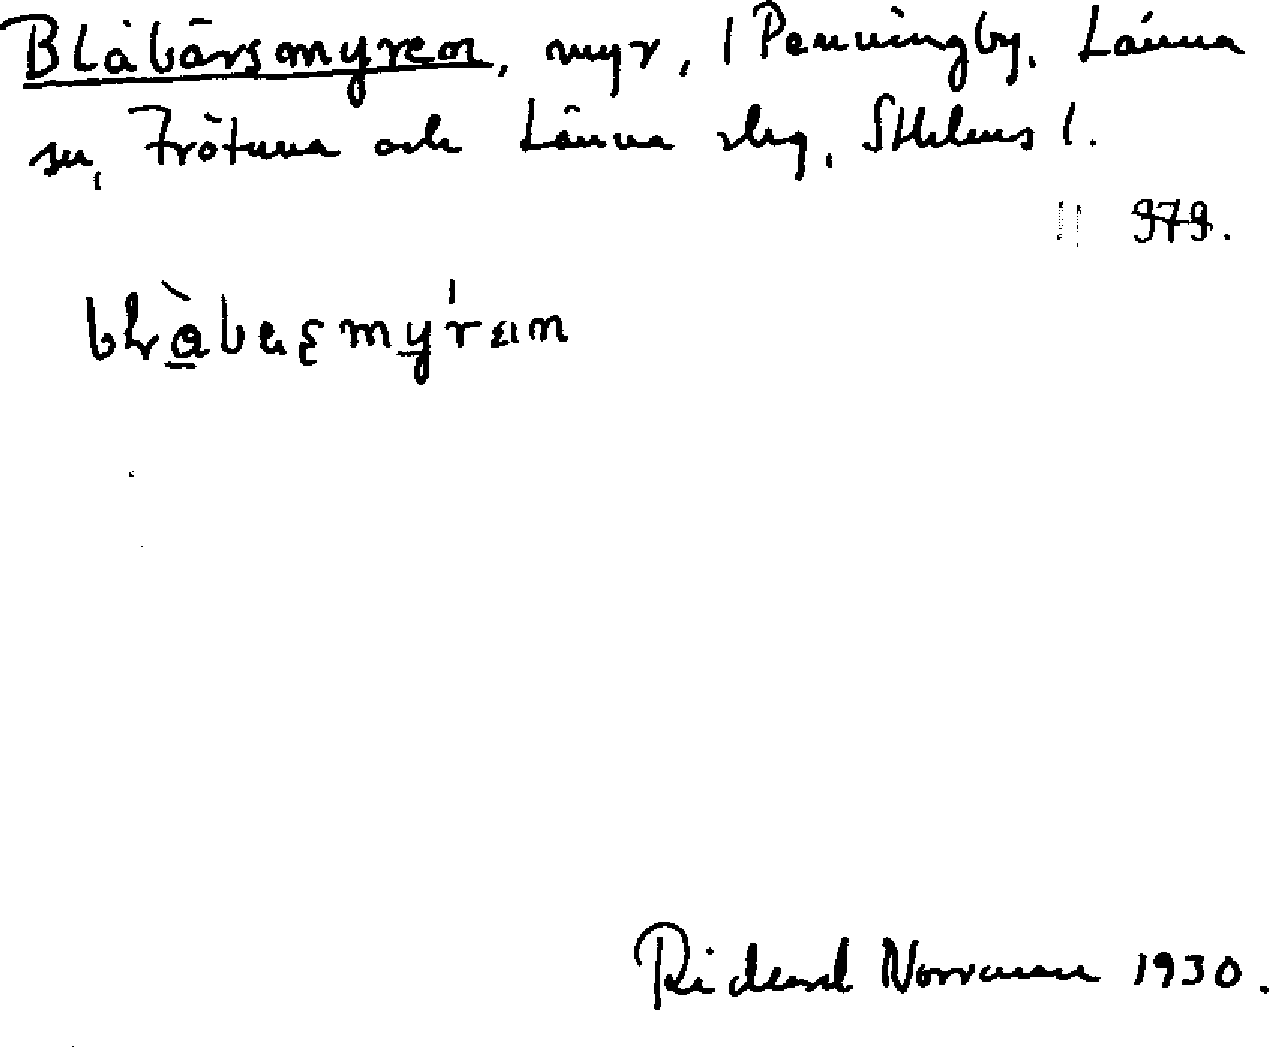 Blåbärsmyren, myr, 1 Penningby, Länna
sn, Frötuna och Länna skg, Sthlms l.
979.
Rickard Norrman 1930.